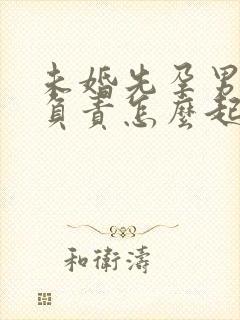 未婚先孕男
負責怎麼起
和衛濤